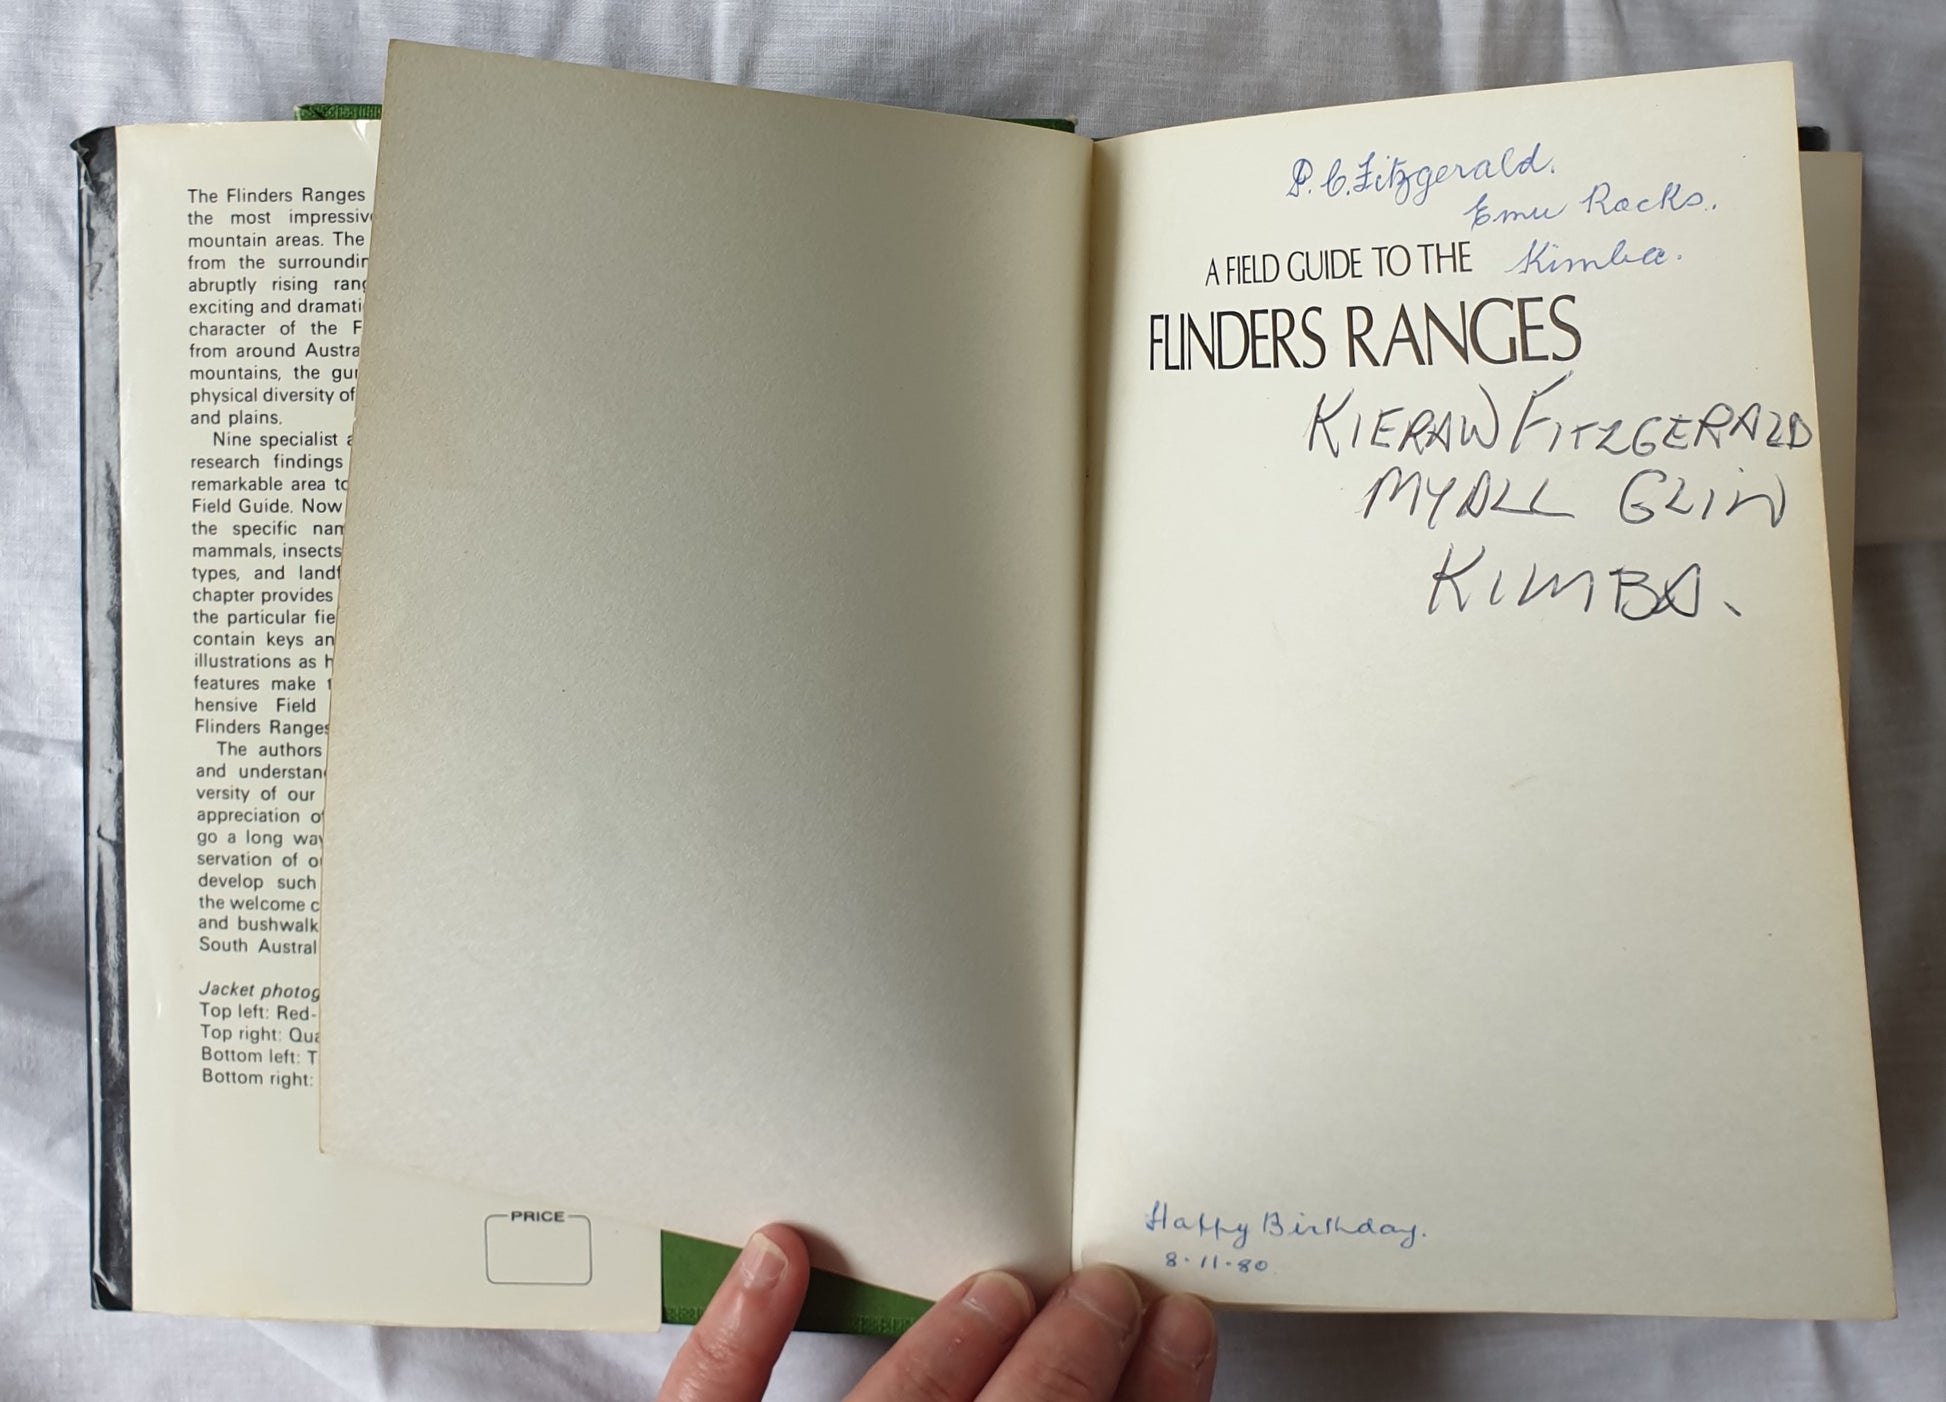 The Flinders Ranges
the most impressiv
mountain areas. The
from the surroundin
abruptly rising rang
exciting and dramati
character of the F
from around Austra
mountains, the gu
physical diversity of
and plains.
Nine specialist a
research findings
remarkable area to
Field Guide. Now
the specific nam
mammals, insects
types, and landf
chapter provides
the particular fie
contain keys an
illustrations as h
features make t
hensive Field
Flinders Ranges
The authors
and understan
versity of our
appreciation of
go a long way
servation of o
develop such
the welcome c
and bushwalk
South Austral
Jacket photog
Top left: Red-
Top right: Qua
Bottom left: T
Bottom right:
PRICE
P. C. Fitzgerald.
Emu Rocks.
Kimba.
A FIELD GUIDE TO THE
FLINDERS RANGES
KIERAN FITZGERALD
MYALL GLIN
KIMBA.
Happy Birthday.
8.11.80